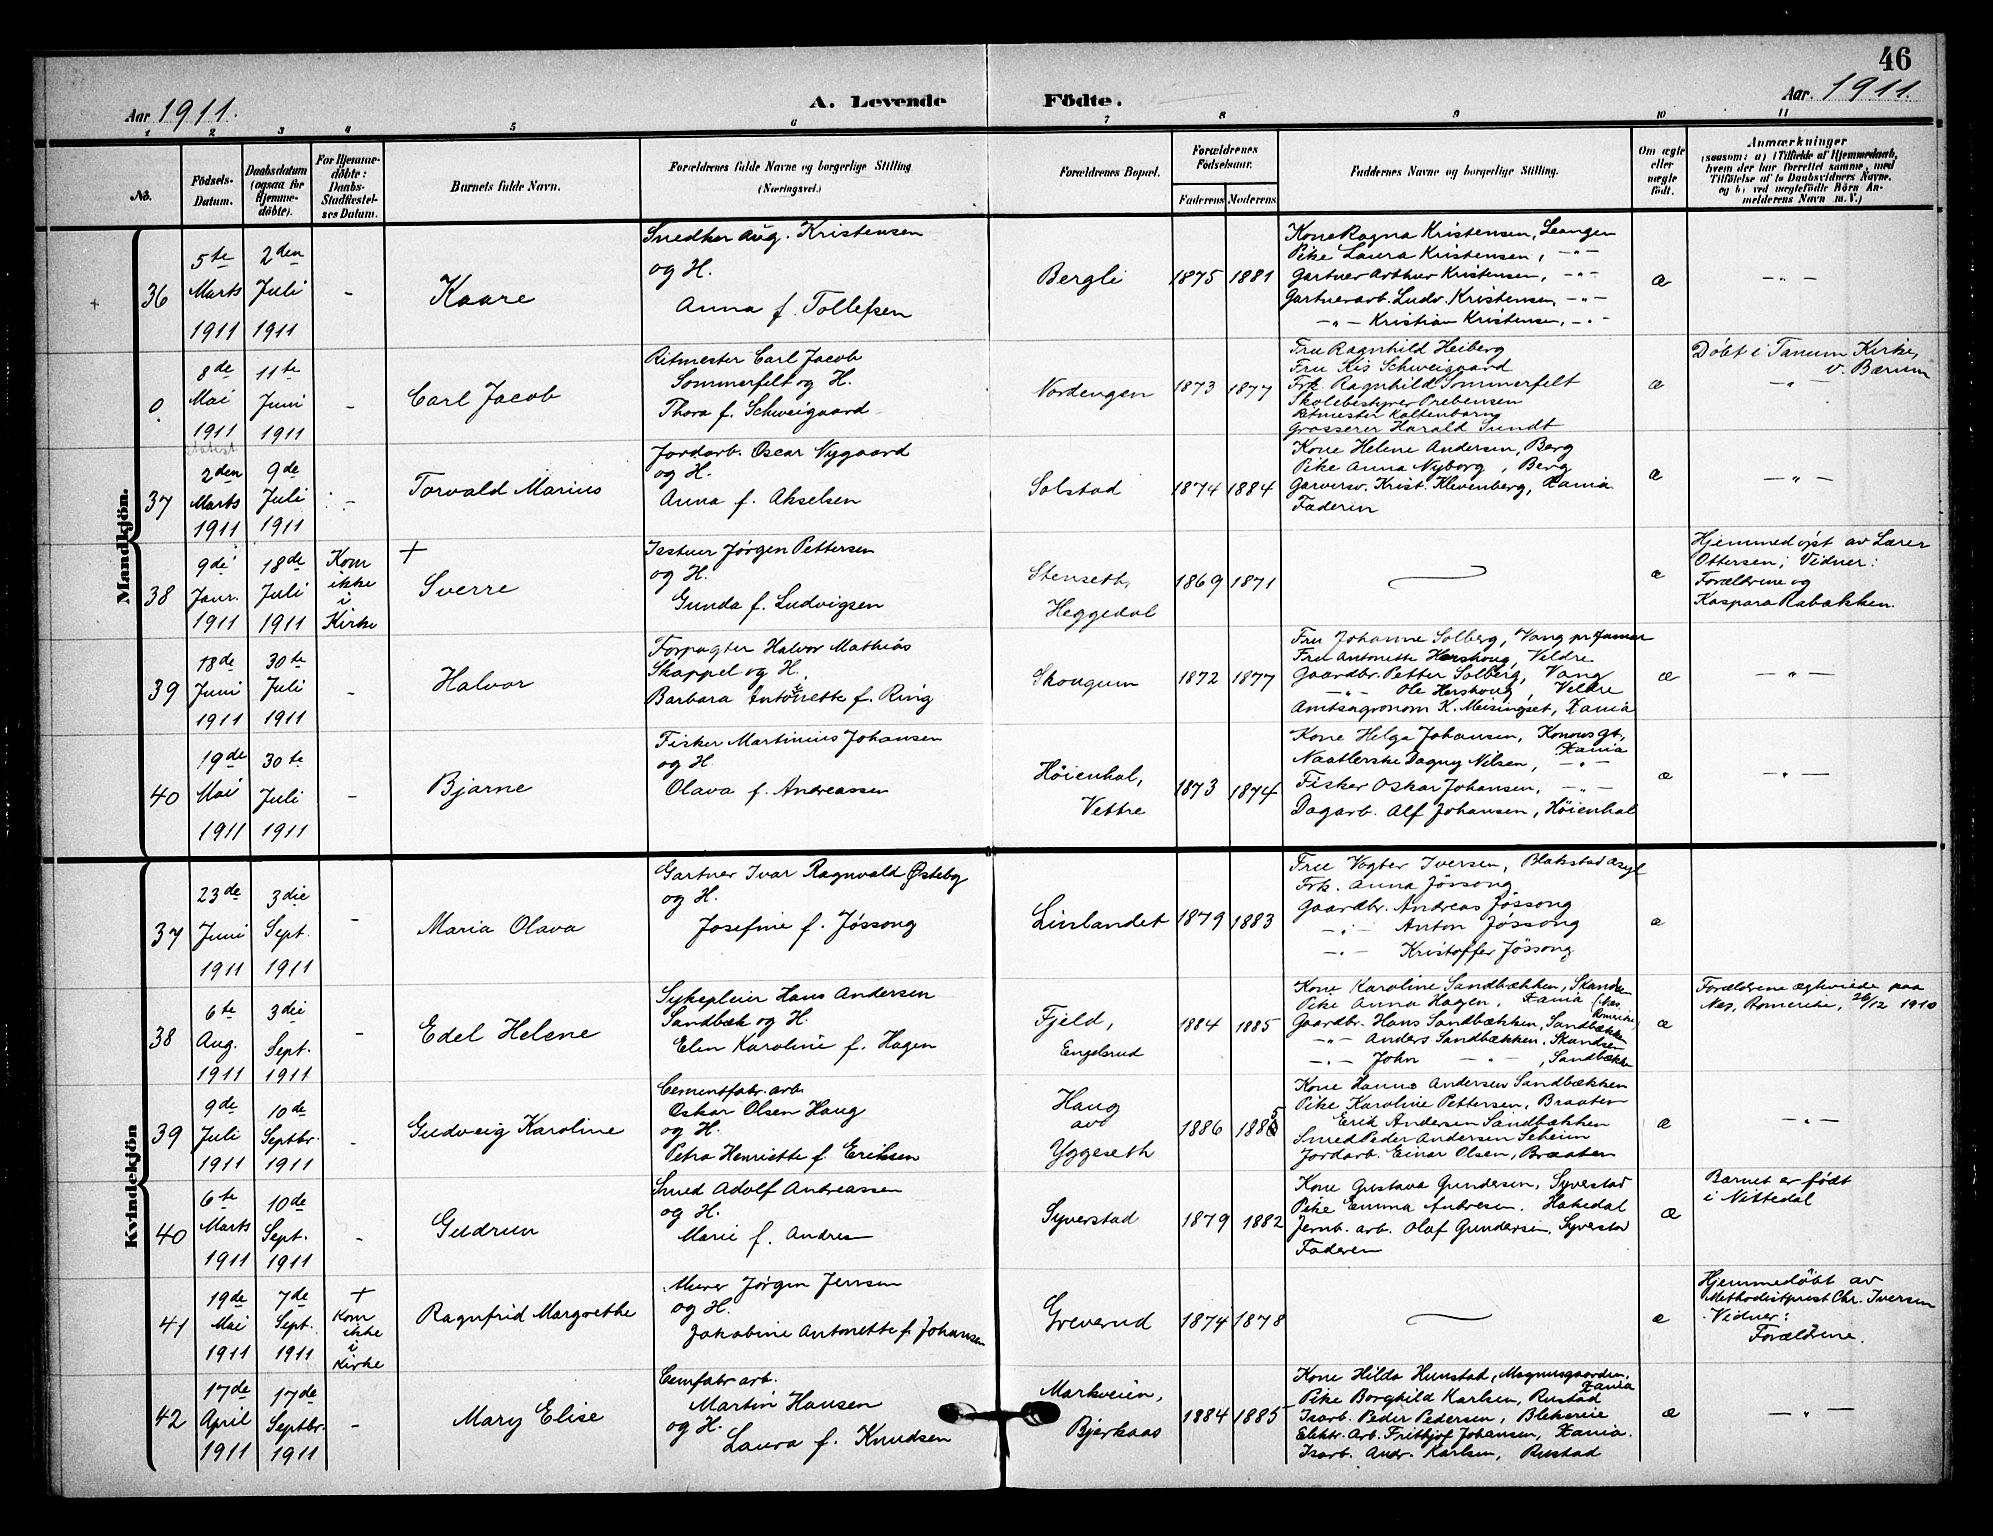 46
Aar 1911.
A. Levende Födte.
Aar. 1911.
1 2 3 4 5 6 7 8 9 10 11
No.
Födsels-Datum.
Daabsdatum (ogsaa for Hjemmedöbte).
For Hjemmedöbte: Daabs-Stadfæstelses Datum.
Barnets fulde Navn.
Forældrenes fulde Navne og borgerlige Stilling
(Næringsvei.)
Forældrenes Bopæl.
Forældrenes Födselsaar.
Faderens Moderens
Faddernes Navne og borgerlige Stilling.
Om ægte eller uægte födt.
Anmærkninger
(saasom: a) i Tilfælde af Hjemmedaab,
hvem der har forrettet samme, med
Tilföielse af to Daabsvidners Navne,
og b) ved uægtefödte Börn An-
melderens Navn m. V.)
Mandkjön.
36
5te Marts 1911
2den Juli 1911
-
Kaare
Snedker Aug. Kristensen
og H.
Anna f. Tollefsen
Bergli
1875 1881
Kone Ragna Kristensen, Leangen
Pike Laura Kristensen, -"-
Gartner Arthur Kristensen, -"-
Gartnerarb. Ludv. Kristensen, -"-
-"- Kristian Kristensen, -"-
æ
-"-
0.
8de Mai 1911
11te Juni 1911
-
Carl Jacob
Ritmester Carl Jacob
Sommerfelt og H.
Thora f. Schweigaard
Nordengen
1873 1877
Fru Ragnhild Heiberg
Fru Kis Schweigaard
Frk. Ragnhild Sommerfelt
Skolebestyrer Prebensen
Ritmester Kaltenborn
Grosserer Harald Sundt
æ
Döbt i Tanum Kirke,
v. Bærum
-"-
37
2den Marts 1911
9de Juli 1911
-
Torvald Marius
Jordarb. Oscar Nygaard
og H.
Anna f. Akselsen
Solstad
1874 1884
Kone Helene Andersen, Berg
Pike Anna Nyborg, Berg
Garversv. Krist. Klevenberg, Xania
Faderen
æ
-"-
38
9de Janr. 1911
18de Juli 1911
Kom ikke i Kirke
+
Sverre
Jørgen Pettersen
og H.
Gunda f. Ludvigsen
Stenseth,
Heggedal
1869 1871
æ
Hjemmedøpt av Lærer
Ottersen; Vidner:
Forældrene og
Kaspara Rabakken.
39
18de Juni 1911
30te Juli 1911
-
Halvor
Forpagter Halvor Mathias
Skappel og H.
Barbara Antonette f. Ring
Skougum
1872 1877
Fru Johanne Solberg, Vang pr Hamar
Fru Antonette Hershoug, Veldre
Gaardbr. Petter Solberg, Vang
-"- Ole Hershoug, Veldre
Amtsagronom K. Meisingset, Xania
æ
-"-
40
19de Mai 1911
30te Juli 1911
-
Bjarne
Fisker Martinius Johansen
og H.
Olava f. Andreassen
Høienhal,
Vettre
1873 1874
Kone Helga Johansen, Konowsgt,
Xania
Naatlerske Dagny Nilsen, -"-
Fisker Oskar Johansen, -"-
Dagarb. Alf Johansen, Høienhal
æ
-"-
Kvindekjön
37
23de Juni 1911
3die Sept. 1911
-
Maria Olava
Gartner Ivar Ragnvald Østeby
og H.
Josefine f. Jøssong
Linlandet
1879 1883
Fru Vogter Iversen, Blakstad Asyl
Frk. Anna Jøssong
Gaardbr. Andreas Jøssong
-"- Anton Jøssong
-"- Kristoffer Jøssong
æ
38
6te Aug. 1911
3die Sept. 1911
-
Edel Helene
Sykepleier Hans Andersen
Sandbæk og H.
Elin Karoline f. Hagen
Fjeld,
Engelsrud
1884 1885
Kone Karoline Sandbækken, Skandsen
Pike Anna Hagen, Xania (Nes, Romerike)
Gaardbr. Hans Sandbækken, Sandbækken
-"- Anders Sandbækken, Skandsen
-"- John -"-, Sandbækken
æ
Forældrene egteviede paa
Nes, Romerike, 26/12 1910
39
9de Juli 1911
10de Septbr. 1911
-
Gudveig Karoline
Cementfabr. arb.
Oskar Olsen Haug
og H.
Petra Henriette f. Eriksen
Haug
av
Yggeseth
1886 1885
Kone Hanna Andersen Sandbækken
Pike Karoline Pettersen, Braaten
Erik Andersen Sandbækken
Smed Peder Andersen Seheim
Jordarb. Einar Olsen, Braaten
æ
-"-
40
6te Marts 1911
10de Sept. 1911
-
Gudrun
Smed Adolf Andreassen
og H.
Marie f. Andresen
Syverstad
1879 1882
Kone Gustava Gundersen, Syverstad
Pike Emma Andresen, Hakedal
Jernb. arb. Olaf Gundersen, Syverstad
Faderen
æ
Barnet er født
i Nittedal
41
19de Mai 1911
7de Sept. 1911
+
Kom ikke i Kirke
Ragnfrid Margrethe
Murer Jørgen Jensen
og H.
Jakobine Antonette f. Johansen
Greverud
1874 1878
æ
Hjemmedöbt av
Methodistprest Chr. Iversen
Vidner:
Forældrene.
42
17de April 1911
17de Septbr. 1911
-
Mary Elise
Cemfabr arb.
Martin Hansen
og H.
Laura f. Knudsen
Markveien,
Bjerkaas
1884 1885
Kone Hilda Hunstad, Magnusgaarden,
Xania
Pike Borghild Karlsen, Rustad
Isarb. Peder Pedersen, Blekereie
Elektr. Arb. Frithjof Johansen, Xania.
Isarb. Andr. Karlsen, Rustad
æ
-"-